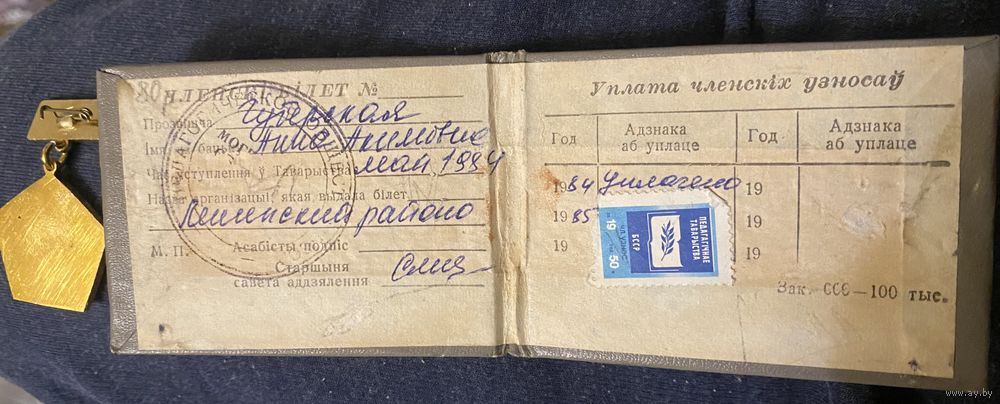 ЧЛЕНСКІ БІЛЕТ №
Прозвішча Губерская
Імя, бац Анна Акимовна
Час уступлення ў Таварыства май 1984
Назва арганізацыі, якая выдала білет
Ленинский районо
М. П. Асабісты подпіс
Старшыня
савета аддзялення
Уплата членскіх узносаў
Год Адзнака аб уплаце Год Адзнака аб уплаце
1984 Уплочено 19
1985 19
19 19
ПЕДАГАГІЧНАЕ
ТАВАРЫСТВА
БССР
19
50
Зак. 669—100 тыс.
www.ay.by